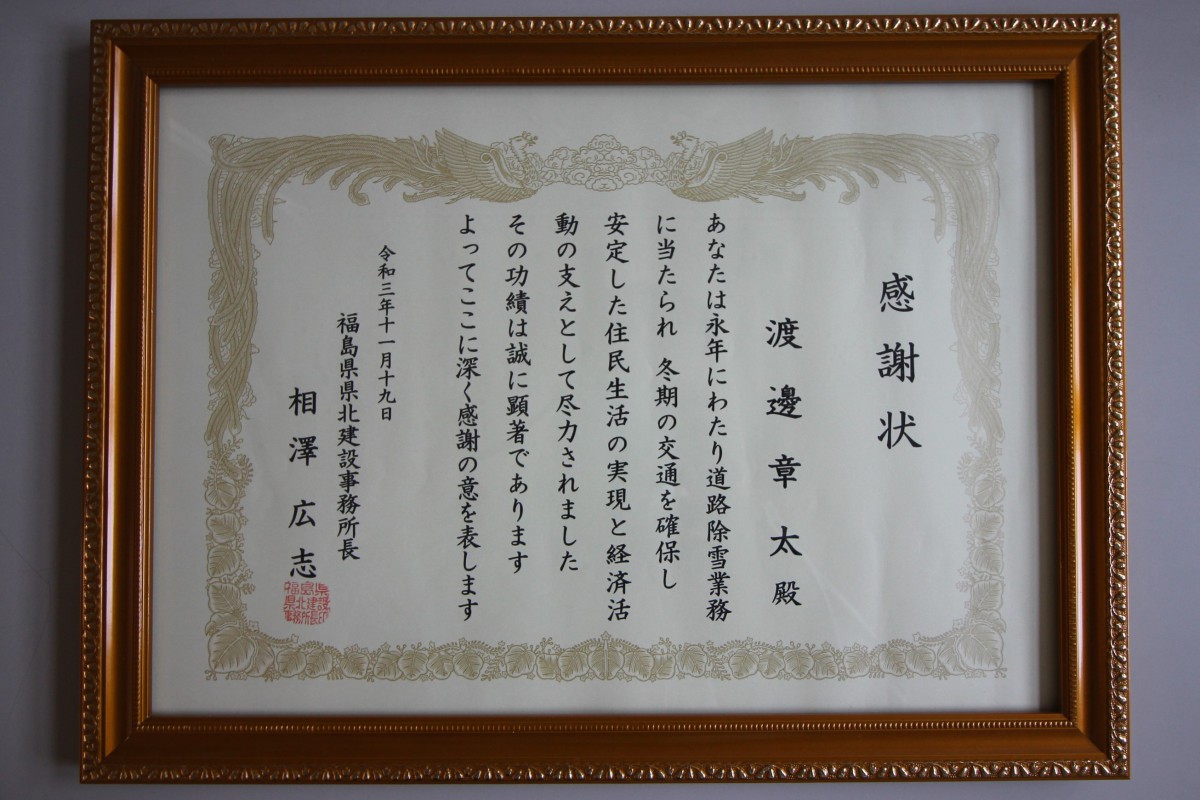 感謝状
渡邊章太殿
あなたは永年にわたり道路除雪業務
に当たられ 冬期の交通を確保し
安定した住民生活の実現と経済活
動の支えとして尽力されました
その功績は誠に顕著であります
よってここに深く感謝の意を表します
令和三年十一月十九日
福島県県北建設事務所長
相澤広志